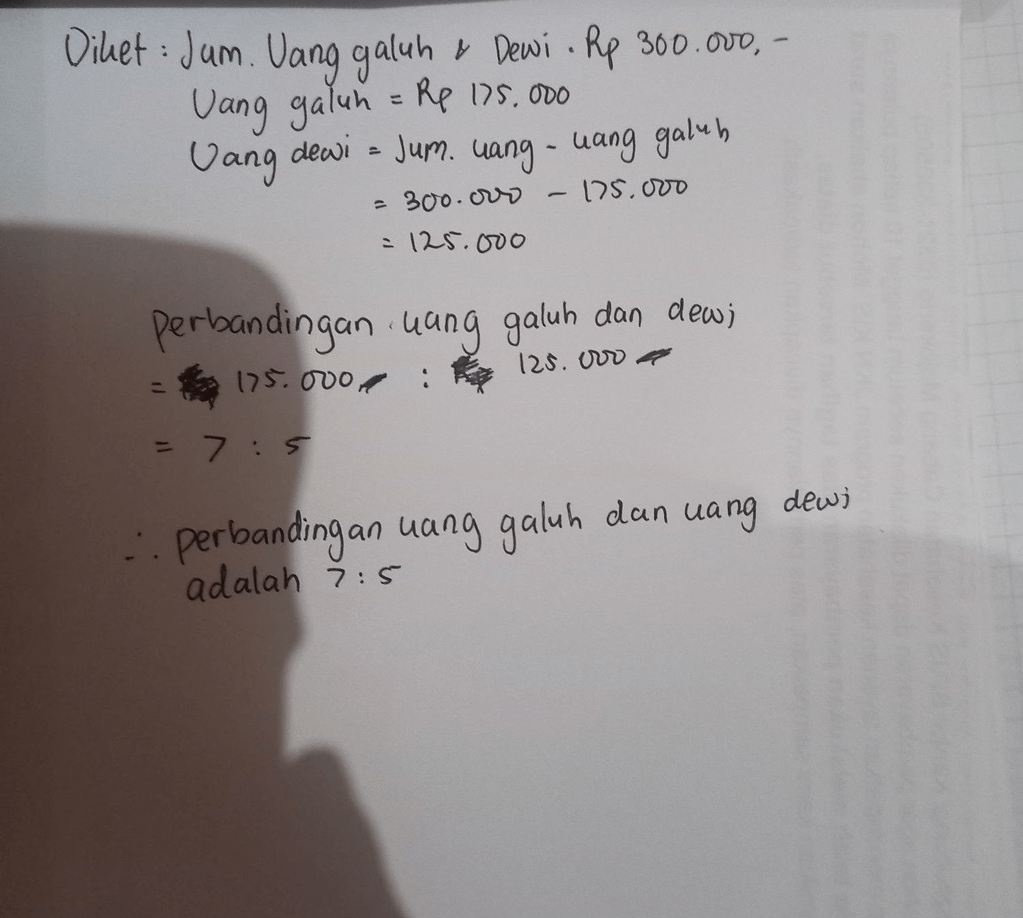 Diket : Jum. Uang galuh & Dewi . Rp 300.000,-
Uang galuh = Rp 175.000
Uang dewi = Jum. uang - uang galuh
= 300.000 - 175.000
= 125.000
perbandingan uang galuh dan dewi
= 175.000 : 125.000
= 7 : 5
∴ perbandingan uang galuh dan uang dewi
adalah 7 : 5